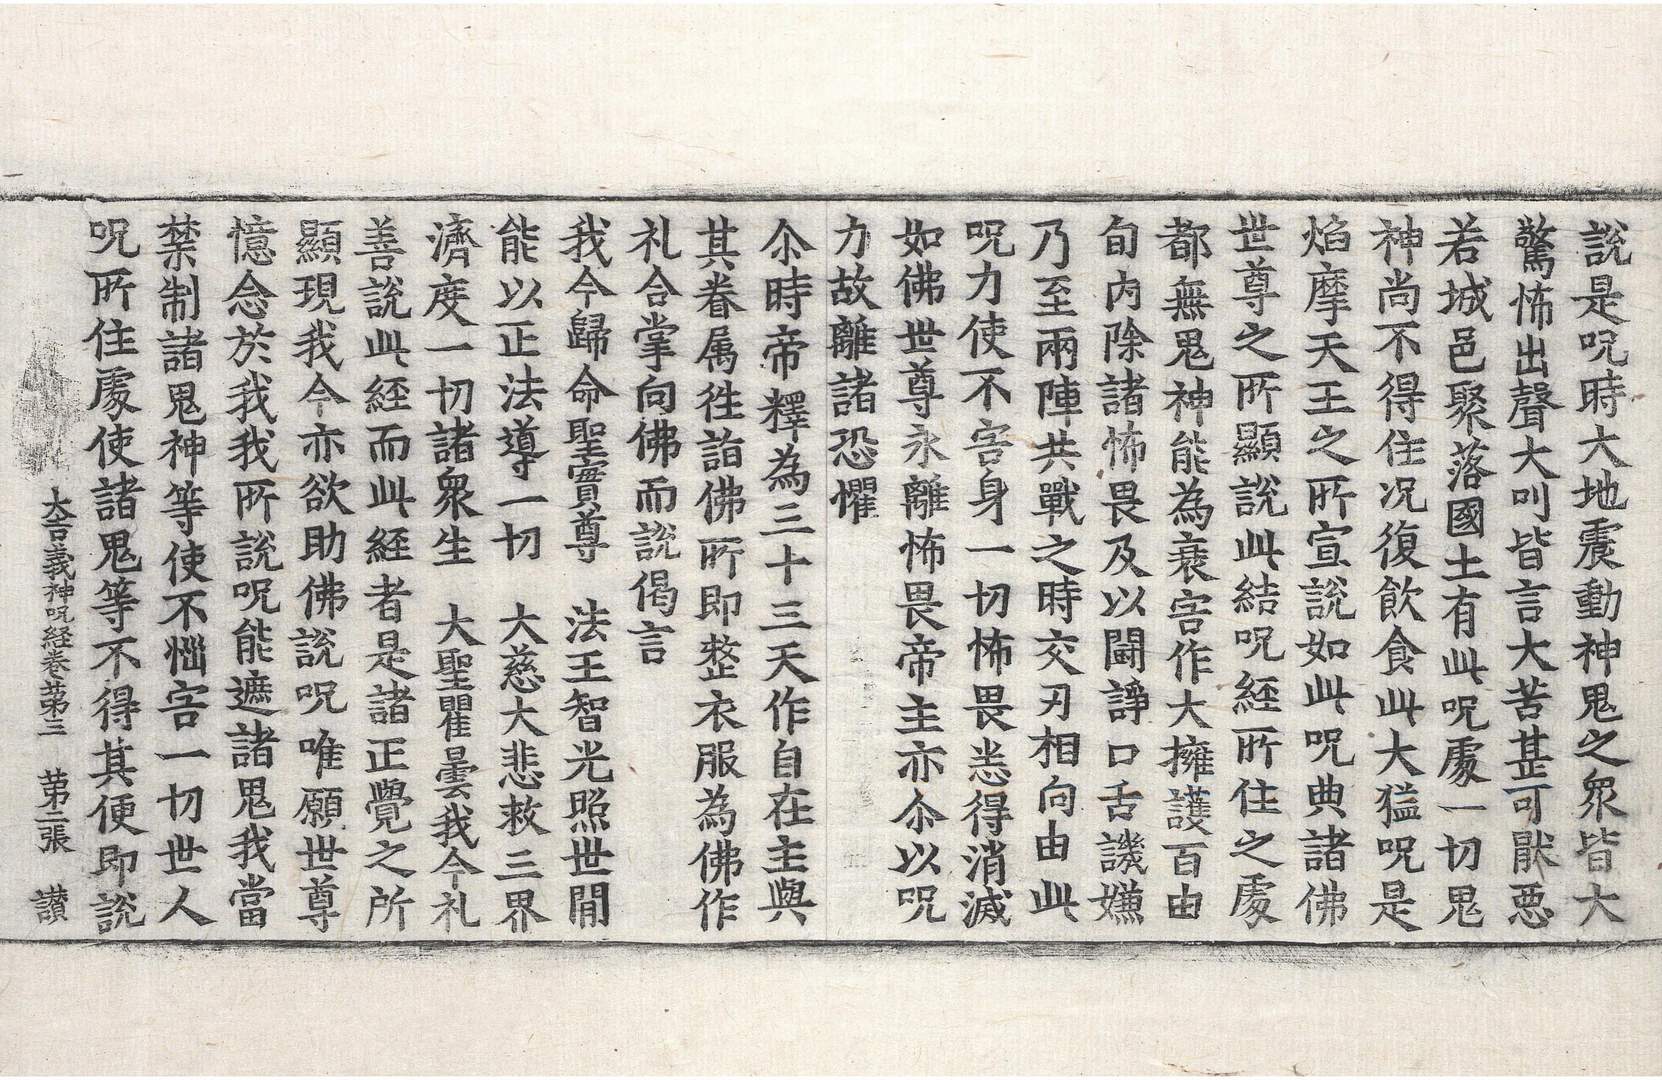 說是呪時大地震動神鬼之衆皆大
驚怖出聲大叫皆言大苦甚可猒惡
若城邑聚落國土有此呪處一切鬼
神尚不得住况復飮食此大猛呪是
焰摩天王之所宣說如此呪典諸佛
世尊之所顯說此結呪經所住之處
都無鬼神能為衰害作大擁護百由
旬內除諸怖畏及以鬪諍口舌譏嫌
乃至兩陣共戰之時交刃相向由此
呪力使不害身一切怖畏悉得消滅
如佛世尊永離怖畏帝主亦尒以呪
力故離諸恐懼
尒時帝釋為三十三天作自在主與
其眷属徃詣佛所即整衣服為佛作
礼合掌向佛而說偈言
我今歸命聖實尊　法王智光照世閒
能以正法導一切　大慈大悲救三界
濟度一切諸衆生　大聖瞿曇我今礼
善說此經而此經者是諸正覺之所
顯現我今亦欲助佛說呪唯願世尊
憶念於我我所說呪能遮諸鬼我當
禁制諸鬼神等使不惱害一切世人
呪所住處使諸鬼等不得其便即說
大吉義神呪經卷第三　第二張　讃